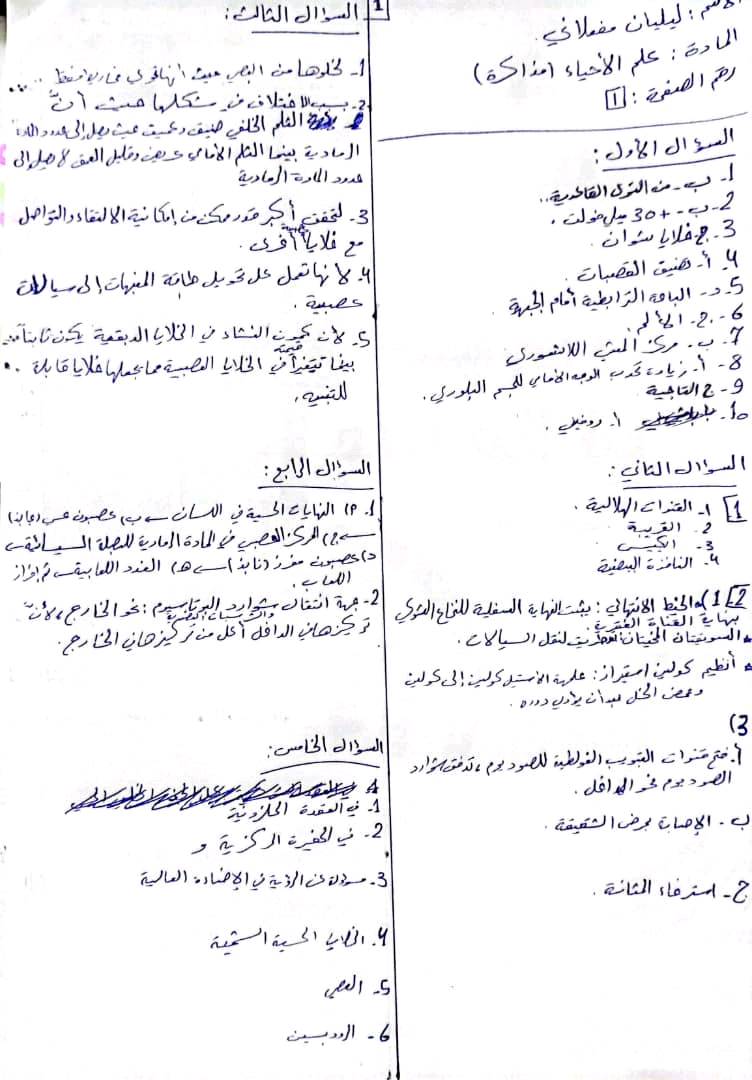 الاسم : ليليان مفعلاني.
المادة : علم الأحياء (مذاكرة)
رقم الصفحة : 1
السؤال الأول :
1- ب - من النوى القاعدية..
2- ب - +30 ميلي فولت .
3- ج خلايا شوان .
4- أ - ضيق القصبات .
5- د - الباحة الترابطية أمام الجبهية .
6- ج. الألم
7- ب. مركز المشي اللاشعوري
8- أ - زيادة تحدب الوجه الأمامي للجسم البلوري .
9- ج التاجية
10- أ. روفيلي .
السؤال الثاني :
1 1- القنوات الهلالية .
2. القريبة
3. الكييس
4. النافذة البيضية
2 1) الخيط الانتهائي : يثبت النهاية السفلية للنخاع الشوكي
بنهاية القناة الفقرية.
السويقتان المخيتان : لنقل السيالات .
أنظيم كولين استيراز : حلمهة الأستيل كولين إلى كولين
وحمض الخل بعد أن يؤدي دوره .
3)
أ. فتح قنوات التبويب الفولطية للصوديوم ، تدفق شوارد
الصوديوم نحو الداخل .
ب - الإصابة بمرض الشقيقة .
ج - استرخاء المثانة .
1
السؤال الثالث :
1- لخلوها من العصي حيث أنها تحوي مخاريط فقط ....
2- بسبب الاختلاف في شكلها حيث أنّ
الثلم الخلفي ضيق وعميق حيث يصل إلى حدود المادة
الرمادية بينما الثلم الأمامي عريض وقليل العمق لا يصل إلى
حدود المادة الرمادية
3- لتحقق أكبر قدر ممكن من إمكانية الالتقاء والتواصل
مع خلايا عصبية أخرى .
4- لأنها تعمل على تحويل طاقة المنبهات إلى سيالات
عصبية .
5- لأن كمون الغشاء في الخلايا الدبقية يكون ثابتاً
بينما تتغير قيمته في الخلايا العصبية مما يجعلها خلايا قابلة
للتنبيه .
السؤال الرابع :
1. أ) النهايات الحسية في اللسان ← ب) عصبون حسي (جابذ)
← ج) المركز العصبي في المادة الرمادية للبصلة السيسائية ←
د) عصبون مفرز (نابذ) ← ه) الغدد اللعابية ← ثم إفراز
اللعاب .
2- جهة انتقال شوارد البوتاسيوم : نحو الخارج ، لأنّ
تركيزها في الداخل أعلى من تركيزها في الخارج .
السؤال الخامس :
1- في العقدة الحلزونية
2- في الحفيرة المركزية و
3- مسؤولة عن الرؤية في الإضاءة العالية
4. الخلايا الحسية الشمية
5- العصي
6- الرودبسين